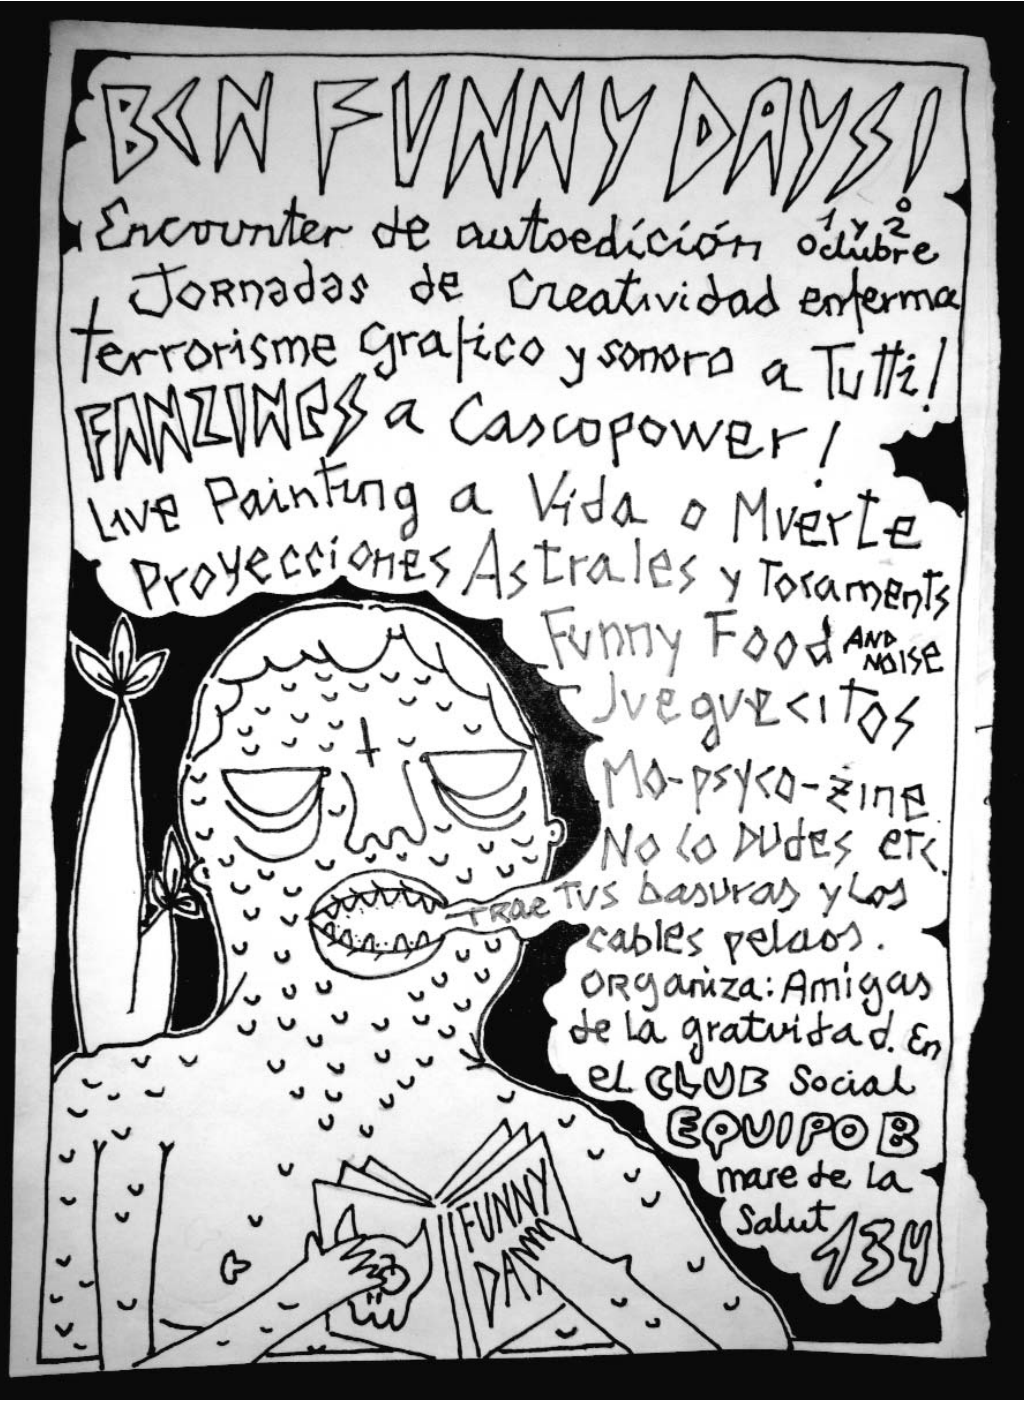 BCN FUNNY DAYS!
Encounter de autoedición 1 y 2 octubre
Jornadas de Creatividad enferma
terrorisme grafico y sonoro a Tutti!
FANZINES a Cascopower!
Live Painting a Vida o Muerte
Proyecciones Astrales y Tocaments
Funny Food AND NOISE
Jueguecitos
Mo-psyco-zine
No lo DUdes etc.
TRae TUS basuras y los
cables pelaos.
ORganiza: Amigas
de la gratuidad. En
el CLUB Social
EQUIPO B
mare de la
Salut 134
FUNNY
DAY